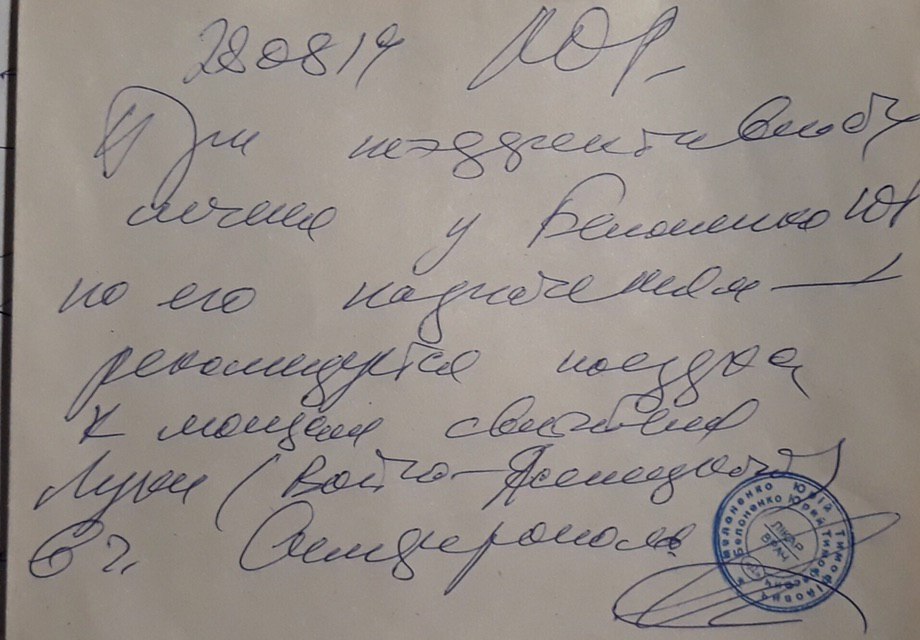 280819 ЛОР
При неэффективности
лечения у Белоненко ЮТ
по его назначениям —
рекомендуется поездка
к мощам святителя
Луки (Войно-Ясенецкого)
в г. Симферополь
Белоненко Юрій Тимофійович
Белоненко Юрий Тимофеевич
ЛІКАР
ВРАЧ